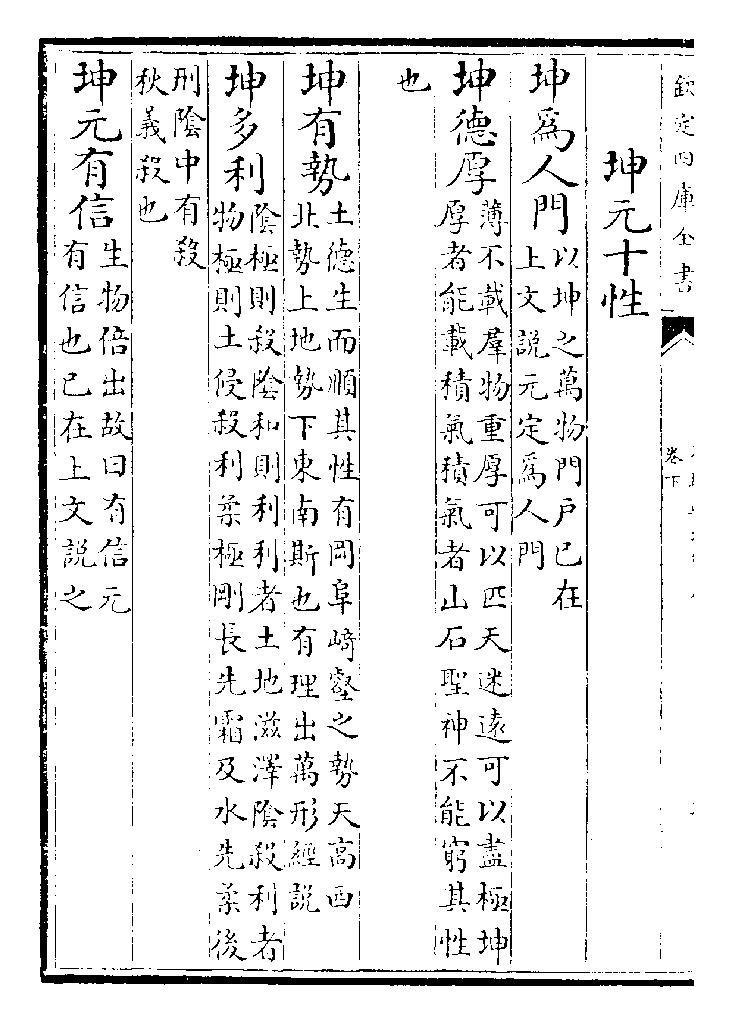 欽定四庫全書
卷下
坤元十性
坤爲人門以坤之萬物門戶已在
上文説元定爲人門
坤德厚薄不載羣物重厚可以匹天迷遠可以盡極坤
厚者能載積氣積氣者山石聖神不能窮其性
也
坤有勢土德生而順其性有岡阜﨑壑之勢天高西
北勢上地勢下東南斯也有理出萬形經説
坤多利陰極則殺陰和則利利者土地滋澤陰殺利者
物極則土侵殺利柔極剛長先霜及水先柔後
刑陰中有殺
秋義殺也
坤元有信生物倍出故曰有信元
有信也已在上文説之